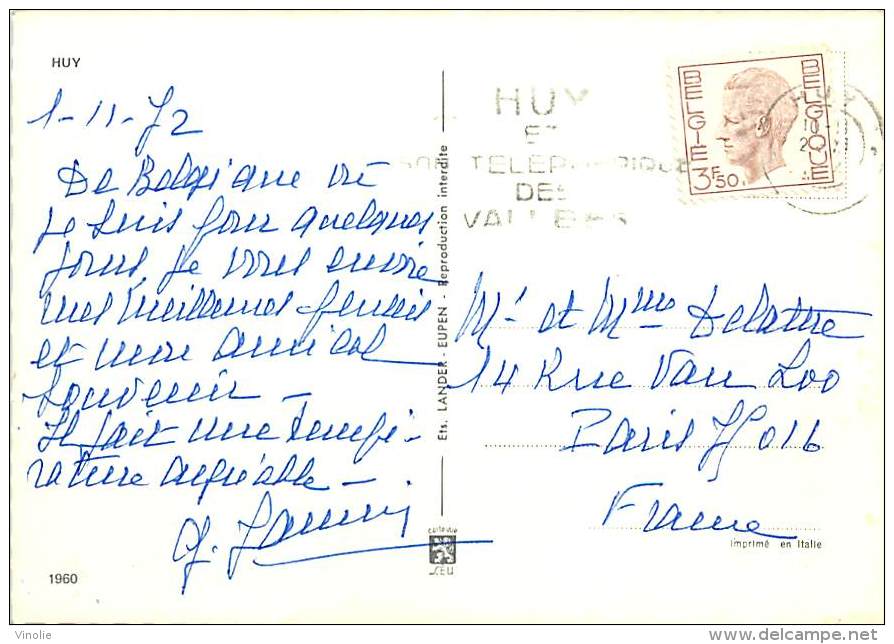 HUY
1-11-72
De Belgique où
je suis pour quelques
jours, je vous envoie
mes meilleures pensées
et mon amical
Souvenir –
Il fait une tempé-
rature agréable –
1960
Ets. LANDER - EUPEN - Reproduction interdite
HUY
ET
SON TELEPHERIQUE
DES
VALLEES
BELGIE BELGIQUE
3F50
HUY
Mr et Mme Delattre
14 Rue Van Loo
Paris 75016
France
imprimé en Italie
Vinolie
http://www.delcampe.net